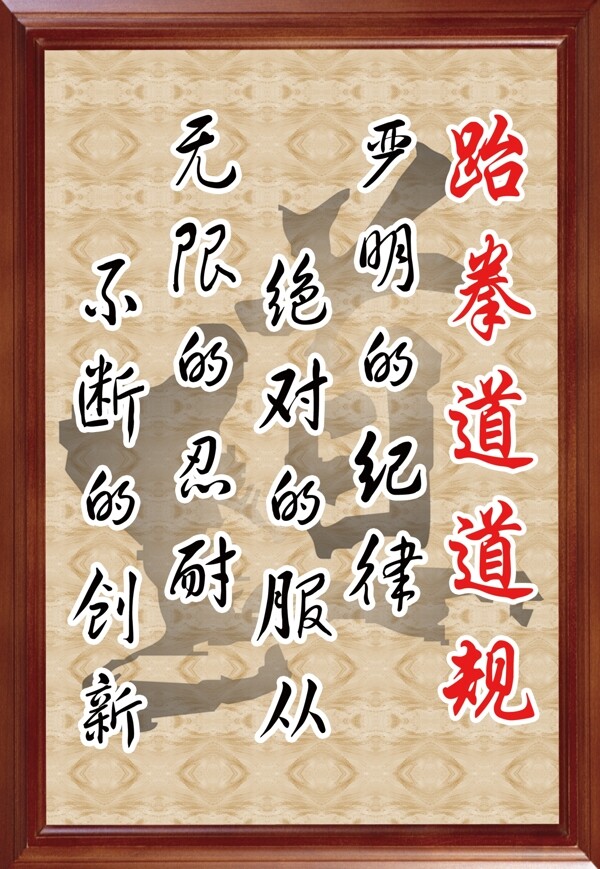 跆拳道道规
严明的纪律
绝对的服从
无限的忍耐
不断的创新